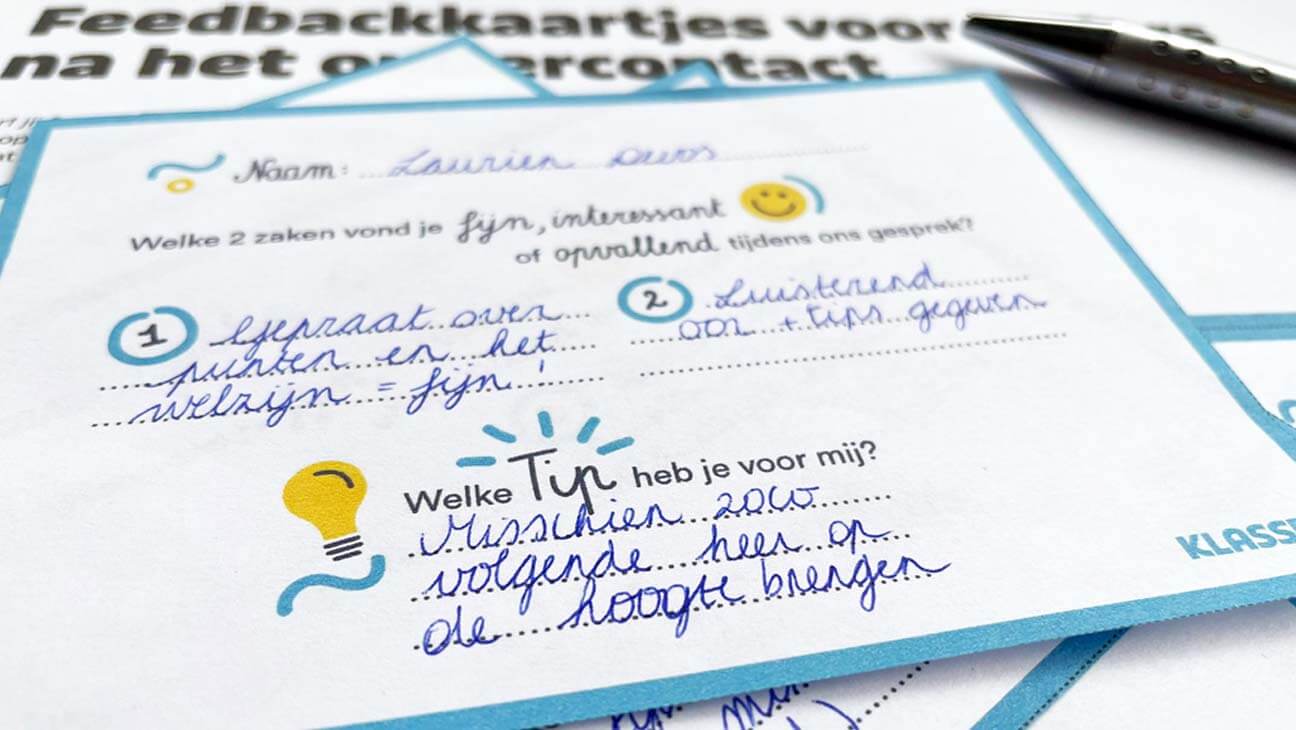 Feedbackkaartjes voor
na het contact
Naam: Laurien
Welke 2 zaken vond je fijn, interessant
of opvallend tijdens ons gesprek?
1 Gepraat over
punten en het
welzijn = fijn!
2 Luisterend
oor + tips gegeven
Welke Tip heb je voor mij?
Misschien zow
volgende keer op
de hoogte brengen
KLASSE